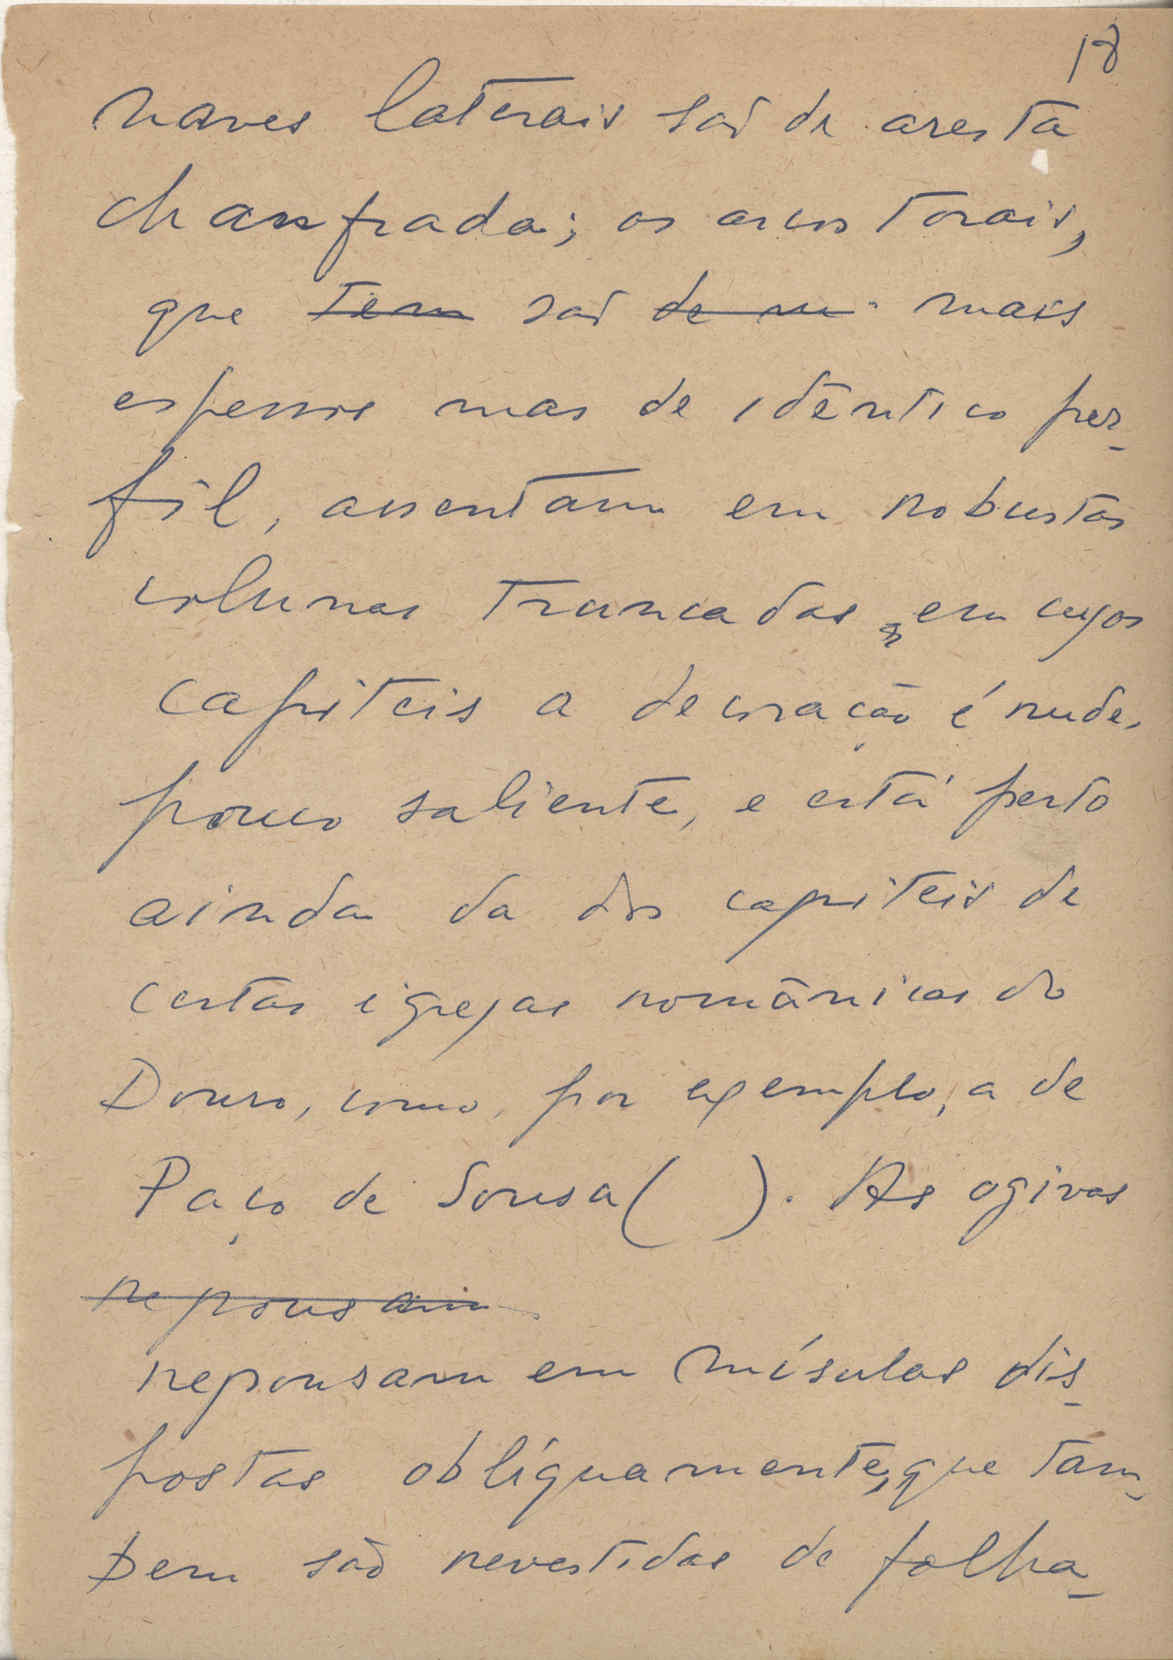 18
naves laterais são de aresta
chanfrada; os arcos torais,
que ~~tem~~ são ~~de m~~ mais
espessos mas de idêntico per-
fil, assentam em robustas
colunas truncadas, em cujos
capiteis a decoração é rude,
pouco saliente, e está perto
ainda da dos capiteis de
certas igrejas românicas do
Douro, como, por exemplo, a de
Paço de Sousa ( ). As ogivas
~~repousam~~
repousam em mísulas dis-
postas obliquamente, que tam-
bem são revestidas de folha-